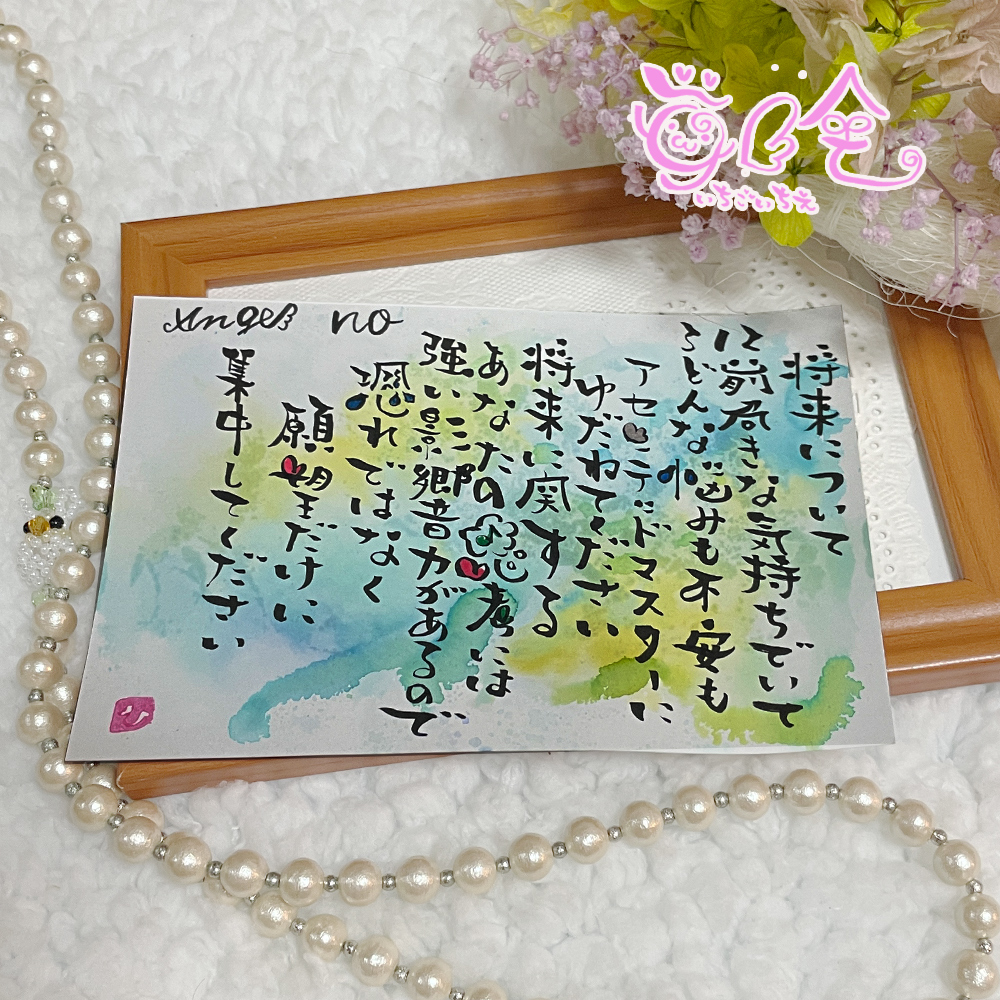 いちごいちえ
Angel no
将来について
前向きな気持ちでいて
どんな悩みも不安も
アセンデッドマスターに
ゆだねてください
将来に関する
あなたの思考には
強い影響力があるので
恐れではなく
願望だけに
集中してください